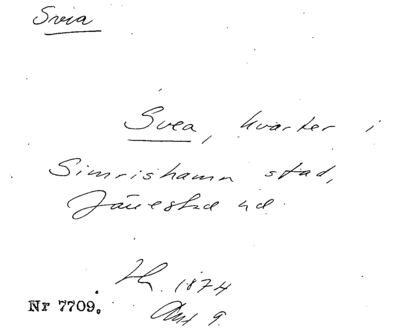 Svea
Svea, kvarter i
Simrishamn stad,
Järrestad hd.
1874
Nr 7709.